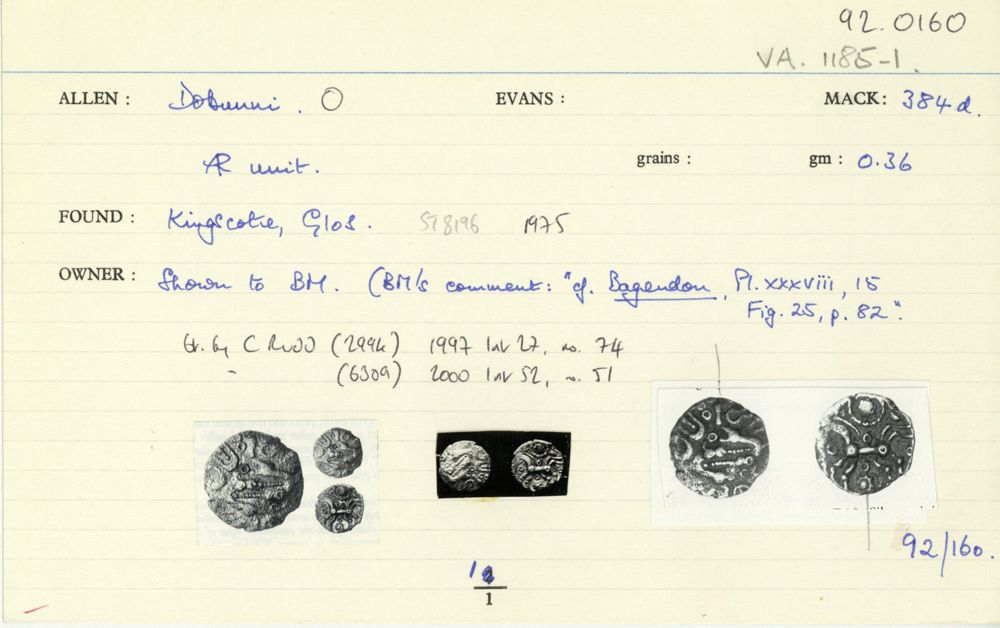 92.0160
VA. 1185-1.
ALLEN : Dobunni. O EVANS : MACK: 384d.
AR unit. grains : gm : 0.36
FOUND : Kingscote, Glos. ST8196 1975
OWNER : Shown to BM. (BM's comment: "cf. Bagendon, Pl. xxxviii, 15
Fig. 25, p. 82".
by C RUDD (2994) 1997 list 27, no. 74
" (6309) 2000 list 52, no. 51
92/160.
1
1